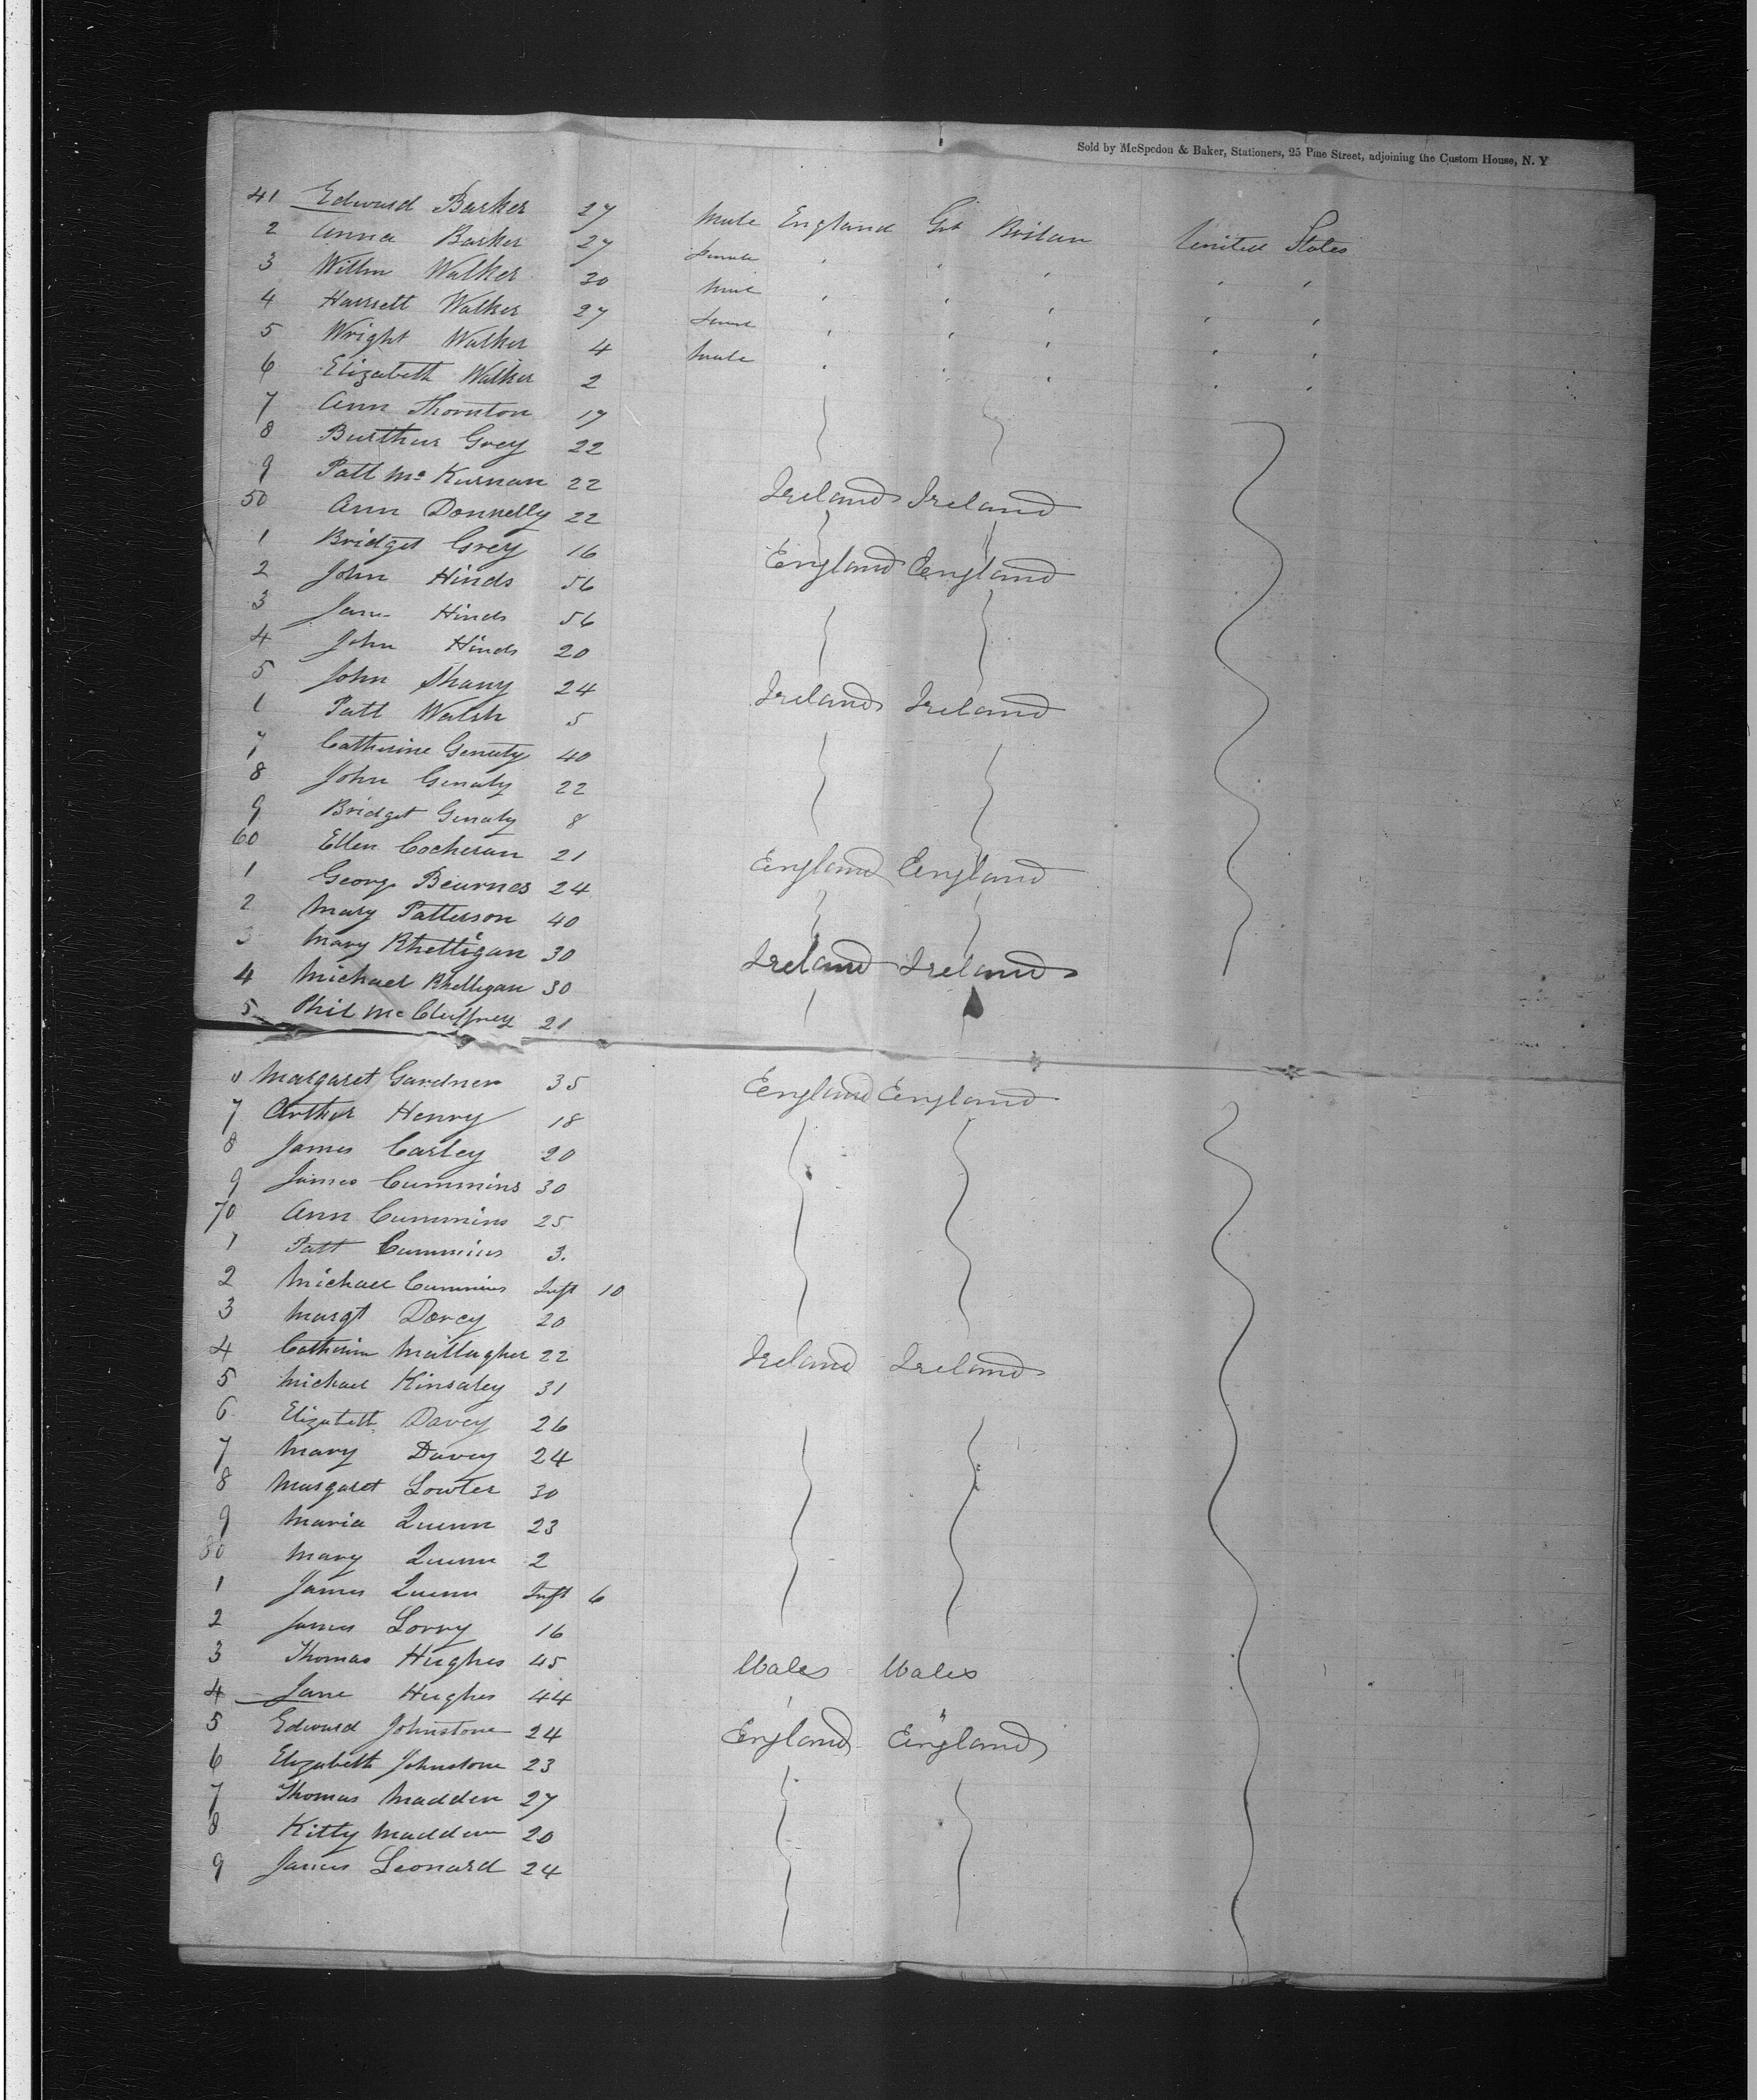 Sold by McSpedon & Baker, Stationers, 25 Pine Street, adjoining the Custom House, N. Y
41 Edward Barker 27 Male England Gt Britan United States
2 Anna Barker 27 Female " " " " "
3 Willm Walker 30 Male " " " " "
4 Harriett Walker 27 Female " " " " "
5 Wright Walker 4 Male " " " " "
6 Elizabeth Walker 2 " " " " "
7 Ann Thornton 17
8 Grey 22
9 Patt Mc Kurnan 22 Ireland Ireland
50 Ann Donnelly 22
1 Bridget Grey 16 England England
2 John Hinds 56
3 Jane Hinds 56
4 John Hinds 20
5 John 24 Ireland Ireland
Patt Walsh 5
7 Catherine Genaty 40
8 John Genaty 22
9 Bridget Genaty 8
60 Ellen Cocheran 21 England England
1 George Bearnes 24
2 Mary Patterson 40
3 Mary Rhettigan 30 Ireland Ireland
4 Michael Rhettigan 30
5 Phil Mc 21
Margaret Gardner 35 England England
7 Arthur Henry 18
8 James Carley 20
9 James Cummins 30
70 Ann Cummins 25
1 Patt Cummins 3.
2 Michael Cummins Inft 10
3 Margt Darcy 20
4 Catherine Mallagher 22 Ireland Ireland
5 Michael Kinsaley 31
6 Elizabeth Davey 26
7 Mary Davey 24
8 Margaret Lowter 30
9 Maria Quinn 23
80 Mary Quinn 2
1 James Quinn Inft 6
2 James Lorry 16
3 Thomas Hughes 45 Wales Wales
4 Jane Hughes 44 " "
5 Edward Johnstone 24 England England
6 Elizabeth Johnstone 23
7 Thomas Madden 27
8 Kitty Madden 20
9 James Leonard 24